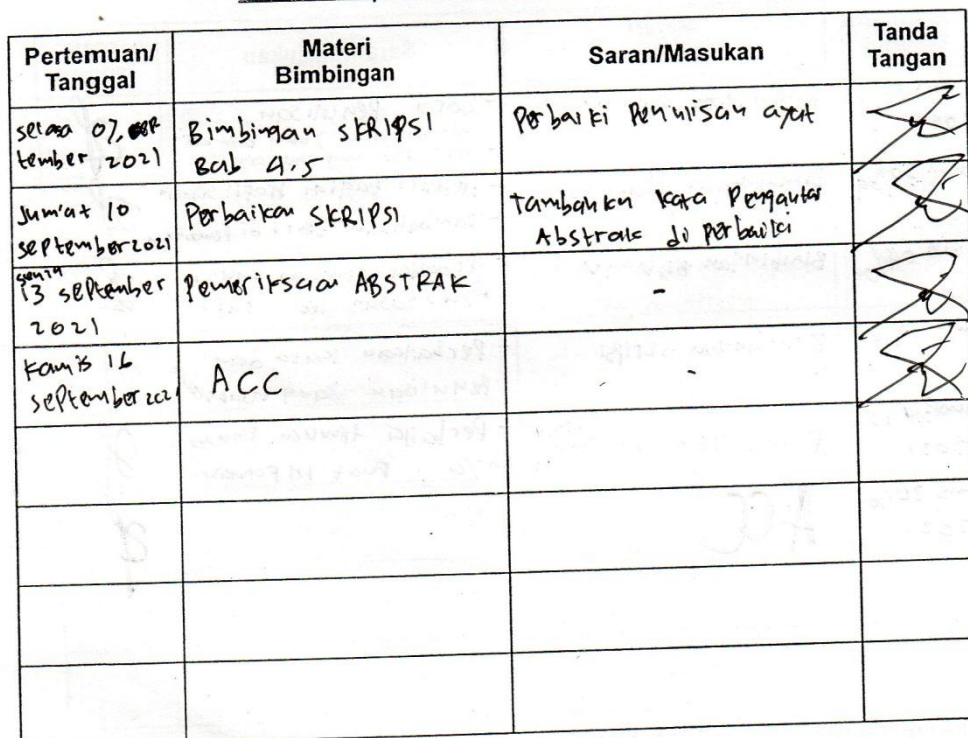 Pertemuan/
Tanggal
Materi
Bimbingan
Saran/Masukan
Tanda
Tangan
selasa 07, sep
tember 2021
Bimbingan SKRIPSI
Bab 4.5
Perbaiki Penulisan ayat
Jum'at 10
september 2021
Perbaikan SKRIPSI
Tambahkan Kata Pengantar
Abstrak di perbaiki
senin
13 september
2021
Pemeriksaan ABSTRAK
-
Kamis 16
september 2021
ACC
-